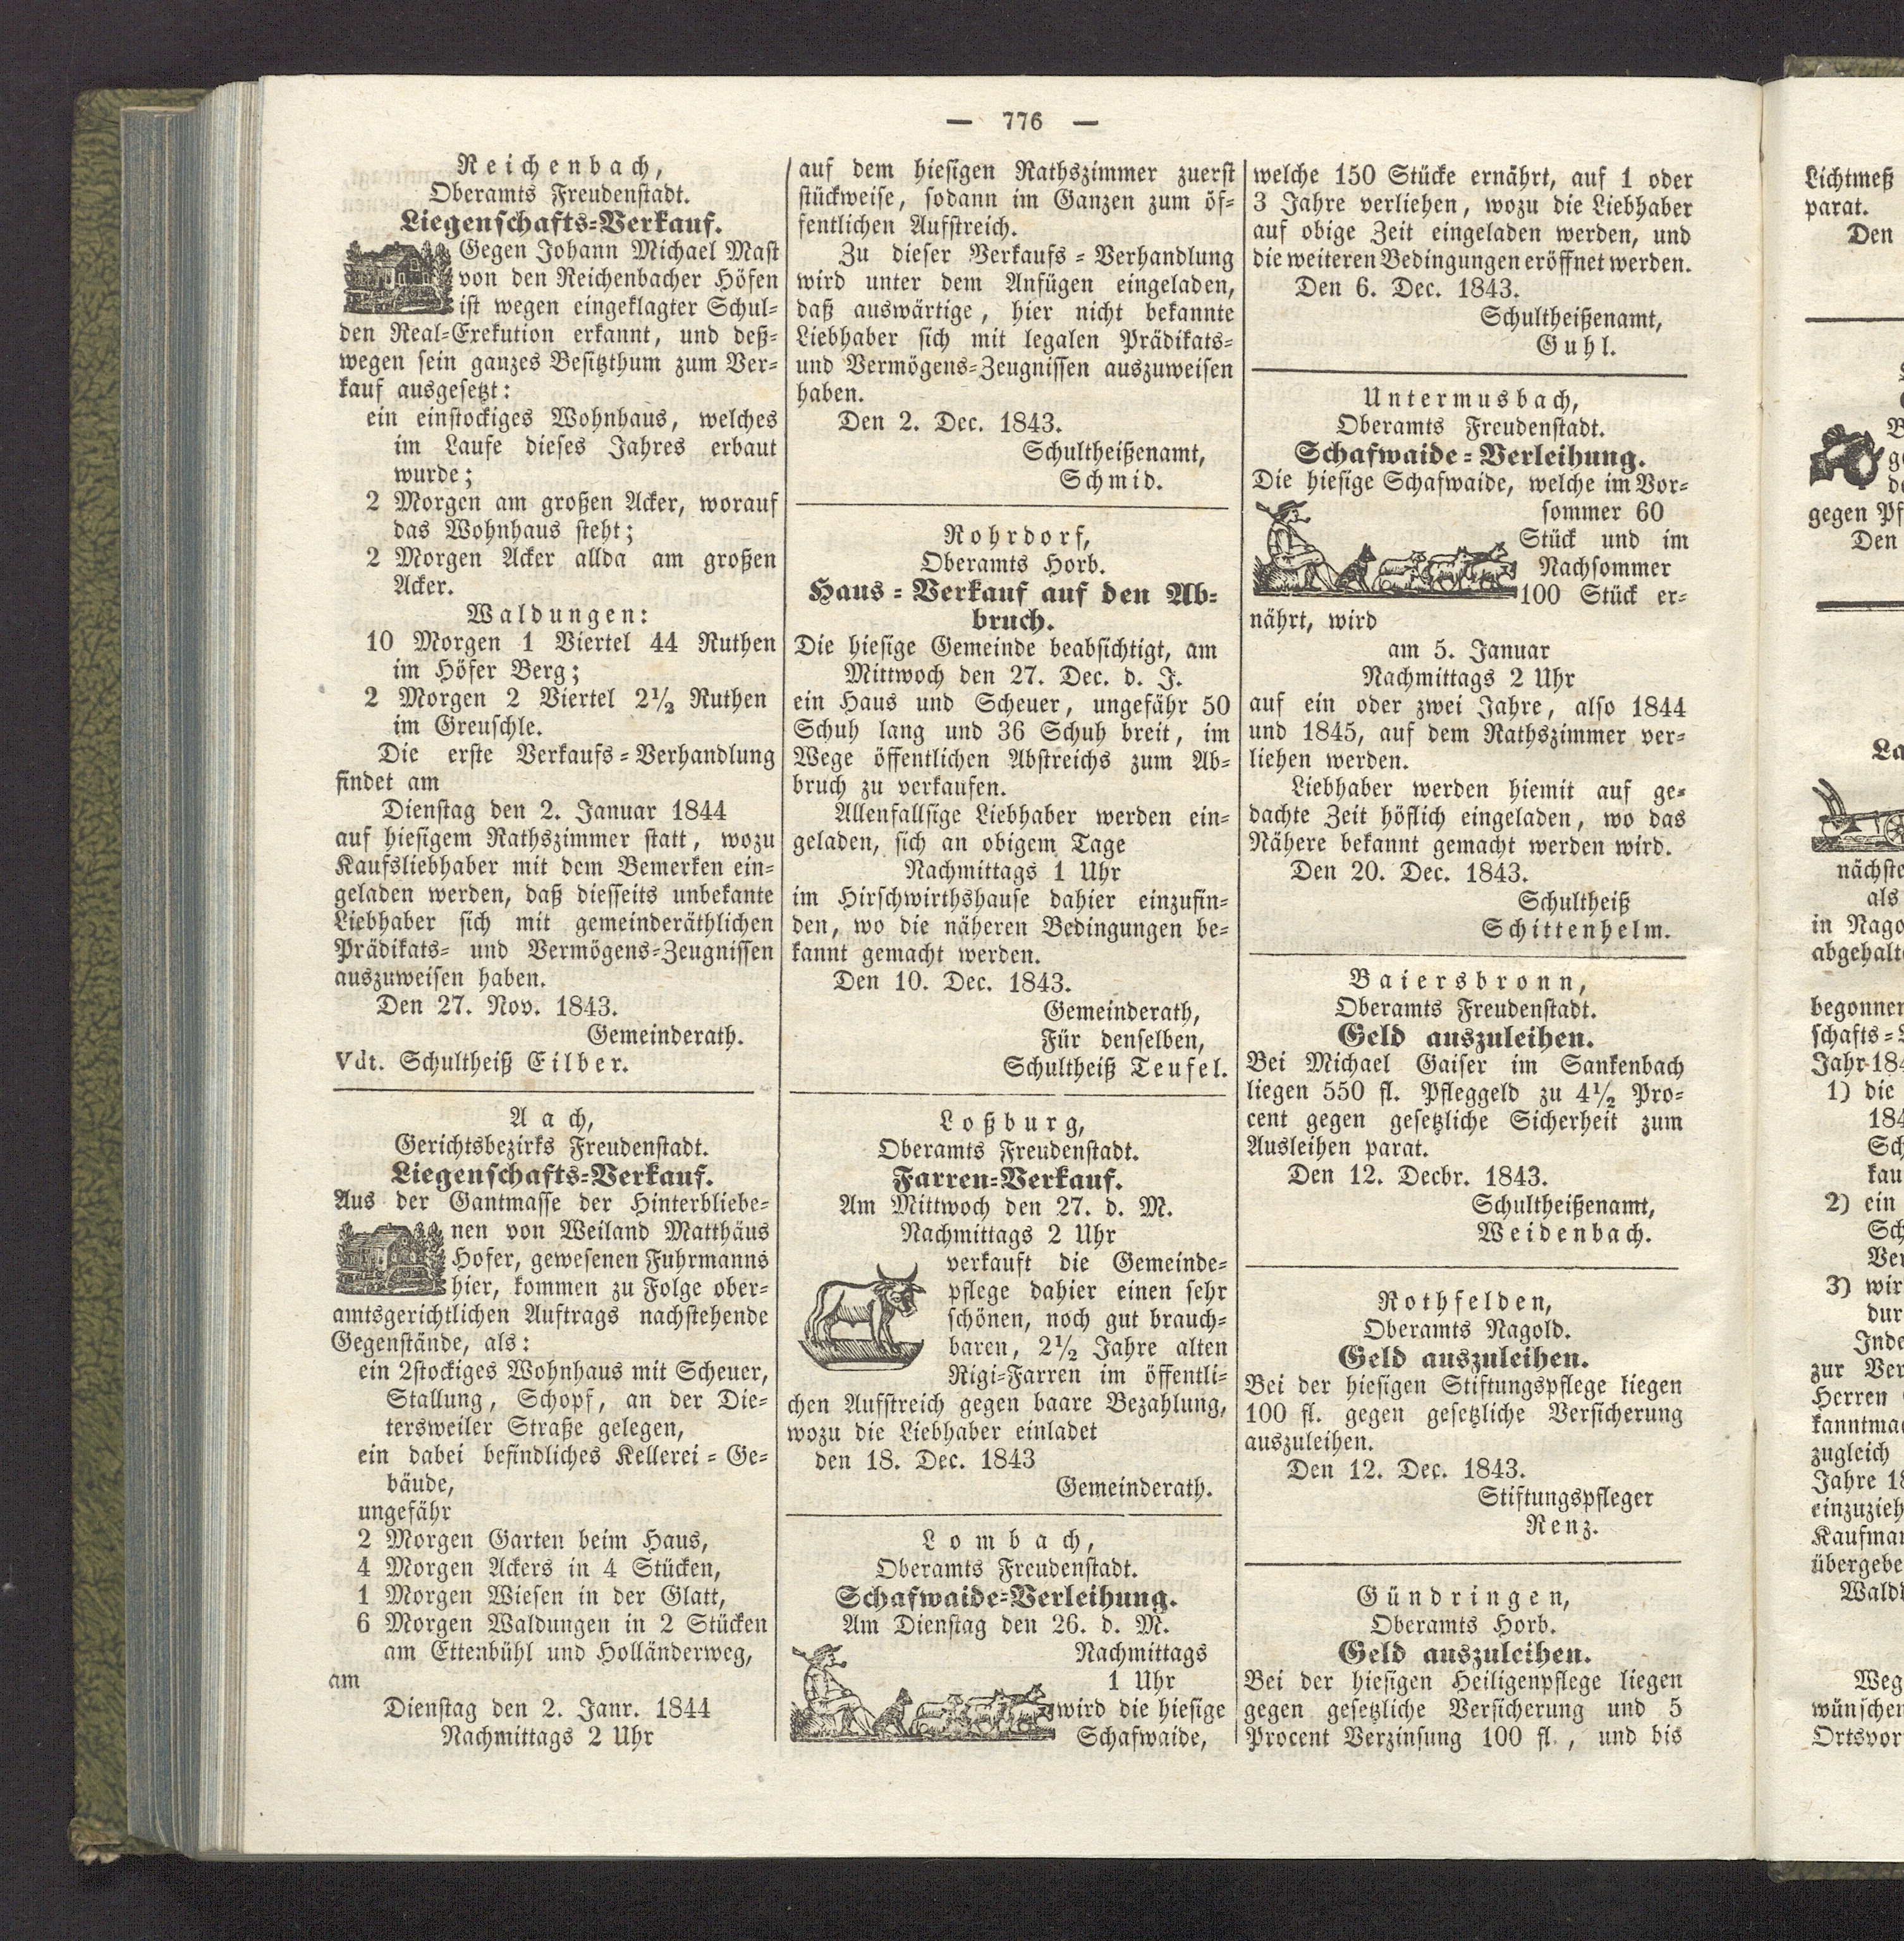 — 776 —
Reichenbach,
Oberamts Freudenstadt.
Liegenschafts-Verkauf.
Gegen Johann Michael Mast
von den Reichenbacher Höfen
ist wegen eingeklagter Schul-
den Real-Exekution erkannt, und deß-
wegen sein ganzes Besitzthum zum Ver-
kauf ausgesetzt:
ein einstockiges Wohnhaus, welches
im Laufe dieses Jahres erbaut
wurde;
2 Morgen am großen Acker, worauf
das Wohnhaus steht;
2 Morgen Acker allda am großen
Acker.
Waldungen:
10 Morgen 1 Viertel 44 Ruthen
im Höfer Berg;
2 Morgen 2 Viertel 2½ Ruthen
im Greuschle.
Die erste Verkaufs-Verhandlung
findet am
Dienstag den 2. Januar 1844
auf hiesigem Rathszimmer statt, wozu
Kaufsliebhaber mit dem Bemerken ein-
geladen werden, daß diesseits unbekante
Liebhaber sich mit gemeinderäthlichen
Prädikats- und Vermögens-Zeugnissen
auszuweisen haben.
Den 27. Nov. 1843.
Gemeinderath.
Vdt. Schultheiß Eilber.
Aach,
Gerichtsbezirks Freudenstadt.
Liegenschafts-Verkauf.
Aus der Gantmasse der Hinterbliebe-
nen von Weiland Matthäus
Hofer, gewesenen Fuhrmanns
hier, kommen zu Folge ober-
amtsgerichtlichen Auftrags nachstehende
Gegenstände, als:
ein 2stockiges Wohnhaus mit Scheuer,
Stallung, Schopf, an der Die-
tersweiler Straße gelegen,
ein dabei befindliches Kellerei-Ge-
bäude,
ungefähr
2 Morgen Garten beim Haus,
4 Morgen Ackers in 4 Stücken,
1 Morgen Wiesen in der Glatt,
6 Morgen Waldungen in 2 Stücken
am Ettenbühl und Holländerweg,
am
Dienstag den 2. Janr. 1844
Nachmittags 2 Uhr
auf dem hiesigen Rathszimmer zuerst
stückweise, sodann im Ganzen zum öf-
fentlichen Aufstreich.
Zu dieser Verkaufs-Verhandlung
wird unter dem Anfügen eingeladen,
daß auswärtige, hier nicht bekannte
Liebhaber sich mit legalen Prädikats-
und Vermögens-Zeugnissen auszuweisen
haben.
Den 2. Dec. 1843.
Schultheißenamt,
Schmid.
Rohrdorf,
Oberamts Horb.
Haus-Verkauf auf den Ab-
bruch.
Die hiesige Gemeinde beabsichtigt, am
Mittwoch den 27. Dec. d. J.
ein Haus und Scheuer, ungefähr 50
Schuh lang und 36 Schuh breit, im
Wege öffentlichen Abstreichs zum Ab-
bruch zu verkaufen.
Allenfallsige Liebhaber werden ein-
geladen, sich an obigem Tage
Nachmittags 1 Uhr
im Hirschwirthshause dahier einzufin-
den, wo die näheren Bedingungen be-
kannt gemacht werden.
Den 10. Dec. 1843.
Gemeinderath,
Für denselben,
Schultheiß Teufel.
Loßburg,
Oberamts Freudenstadt.
Farren-Verkauf.
Am Mittwoch den 27. d. M.
Nachmittags 2 Uhr
verkauft die Gemeinde-
pflege dahier einen sehr
schönen, noch gut brauch-
baren, 2½ Jahre alten
Rigi-Farren im öffentli-
chen Aufstreich gegen baare Bezahlung,
wozu die Liebhaber einladet
den 18. Dec. 1843
Gemeinderath.
Lombach,
Oberamts Freudenstadt.
Schafwaide-Verleihung.
Am Dienstag den 26. d. M.
Nachmittags
1 Uhr
wird die hiesige
Schafwaide,
welche 150 Stücke ernährt, auf 1 oder
3 Jahre verliehen, wozu die Liebhaber
auf obige Zeit eingeladen werden, und
die weiteren Bedingungen eröffnet werden.
Den 6. Dec. 1843.
Schultheißenamt,
Guhl.
Untermusbach,
Oberamts Freudenstadt.
Schafwaide-Verleihung.
Die hiesige Schafwaide, welche im Vor-
sommer 60
Stück und im
Nachsommer
100 Stück er-
nährt, wird
am 5. Januar
Nachmittags 2 Uhr
auf ein oder zwei Jahre, also 1844
und 1845, auf dem Rathszimmer ver-
liehen werden.
Liebhaber werden hiemit auf ge-
dachte Zeit höflich eingeladen, wo das
Nähere bekannt gemacht werden wird.
Den 20. Dec. 1843.
Schultheiß
Schittenhelm.
Baiersbronn,
Oberamts Freudenstadt.
Geld auszuleihen.
Bei Michael Gaiser im Sankenbach
liegen 550 fl. Pfleggeld zu 4½ Pro-
cent gegen gesetzliche Sicherheit zum
Ausleihen parat.
Den 12. Decbr. 1843.
Schultheißenamt,
Weidenbach.
Rothfelden,
Oberamts Nagold.
Geld auszuleihen.
Bei der hiesigen Stiftungspflege liegen
100 fl. gegen gesetzliche Versicherung
auszuleihen.
Den 12. Dec. 1843.
Stiftungspfleger
Renz.
Gündringen,
Oberamts Horb.
Geld auszuleihen.
Bei der hiesigen Heiligenpflege liegen
gegen gesetzliche Versicherung und 5
Procent Verzinsung 100 fl., und bis
Lichtmeß
parat.
Den
gegen Pf
Den
La
nächste
als
in Nago
abgehalt
begonnen
schafts-
Jahr 184
1) die
184
Sch
kau
2) ein
Sch
Ver
3) wir
dur
Inde
zur Ver
Herren
kanntma
zugleich
Jahre 18
einzuzieh
Kaufman
übergebe
Wald
Weg
wünschen
Ortsvor